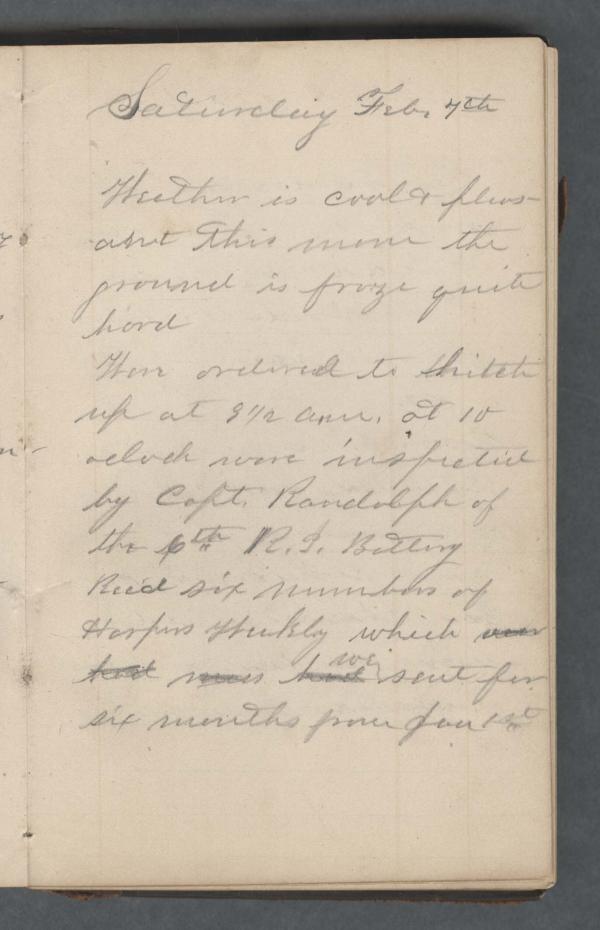 Saturday Feb. 7th
Weather is cool & pleas-
ant this morn the
ground is froze quite
hard
Were ordered to hitch
up at 9 1/2 a.m. at 10
oclock were inspected
by Capt. Randolph of
the 6th R.I. Battery
Recd six numbers of
Harpers Weekly which our
had mess had we sent for
six months from Jan 1st